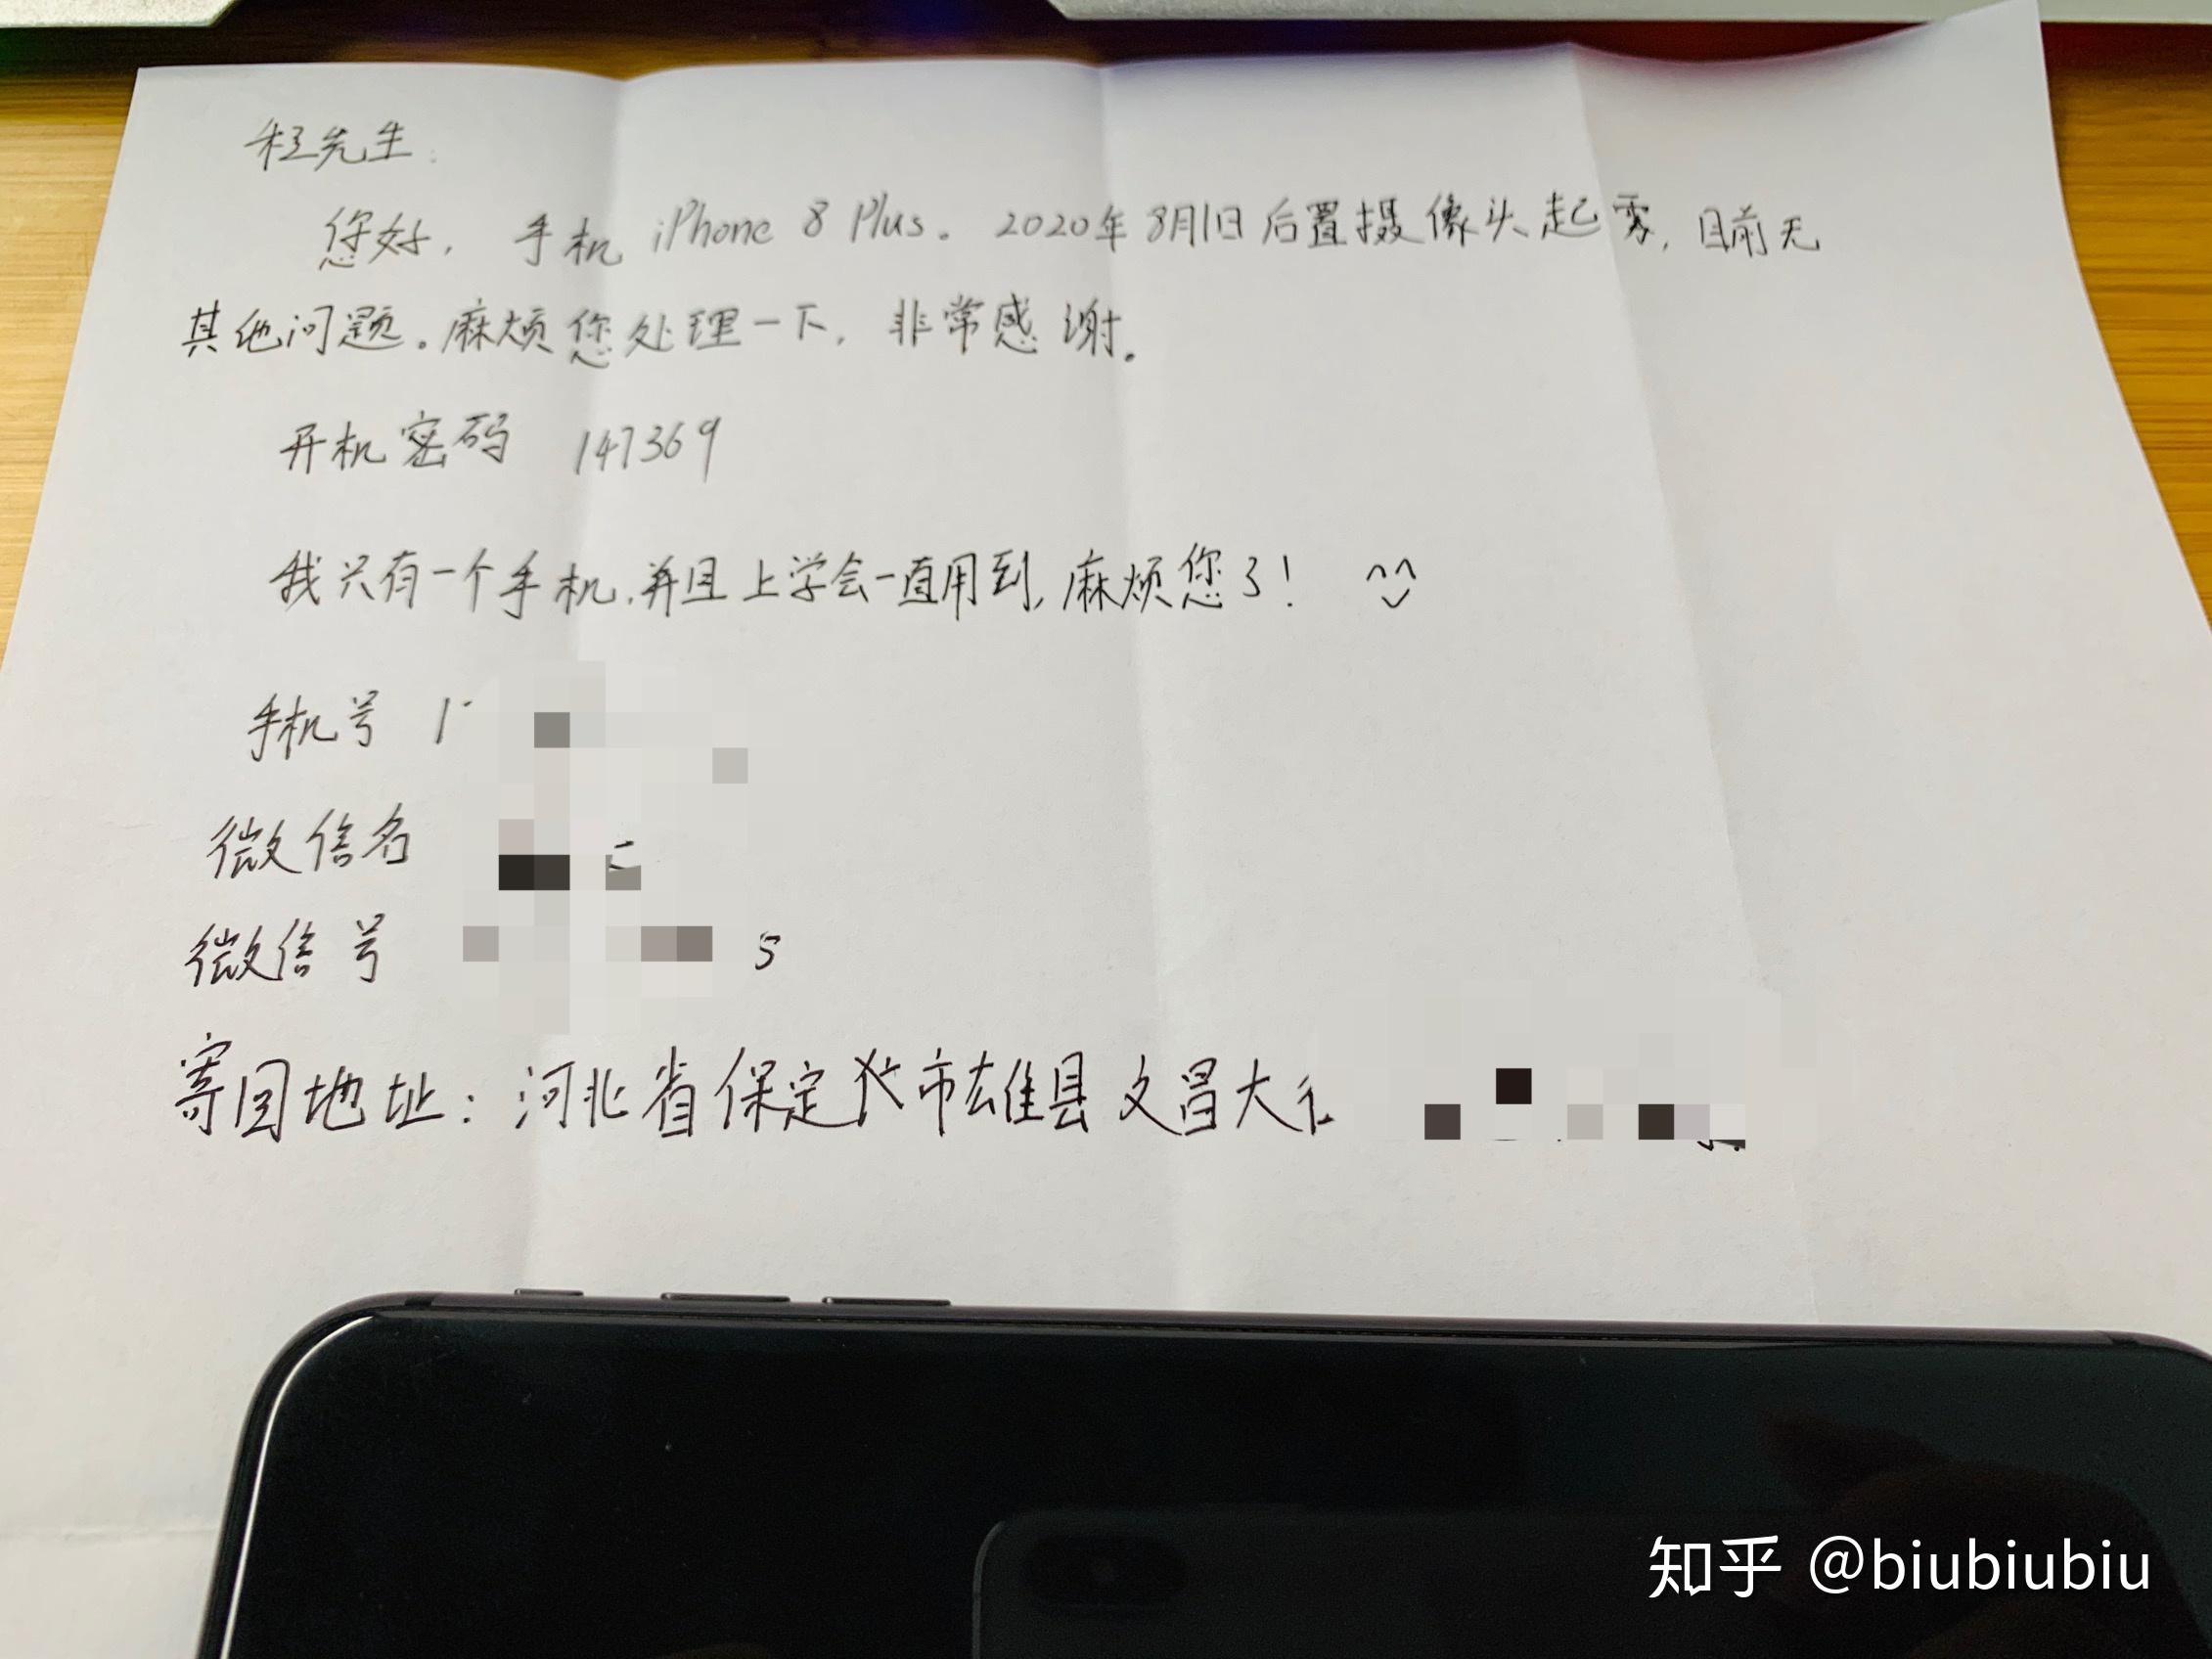 程先生：
您好，手机 iPhone 8 Plus。2020年8月1日后置摄像头起雾，目前无
其他问题。麻烦您处理一下，非常感谢。
开机密码 147369
我只有一个手机，并且上学会一直用到，麻烦您了！ ^^
手机号 1
微信名
微信号 5
寄回地址：河北省保定市雄县文昌大
知乎 @biubiubiu